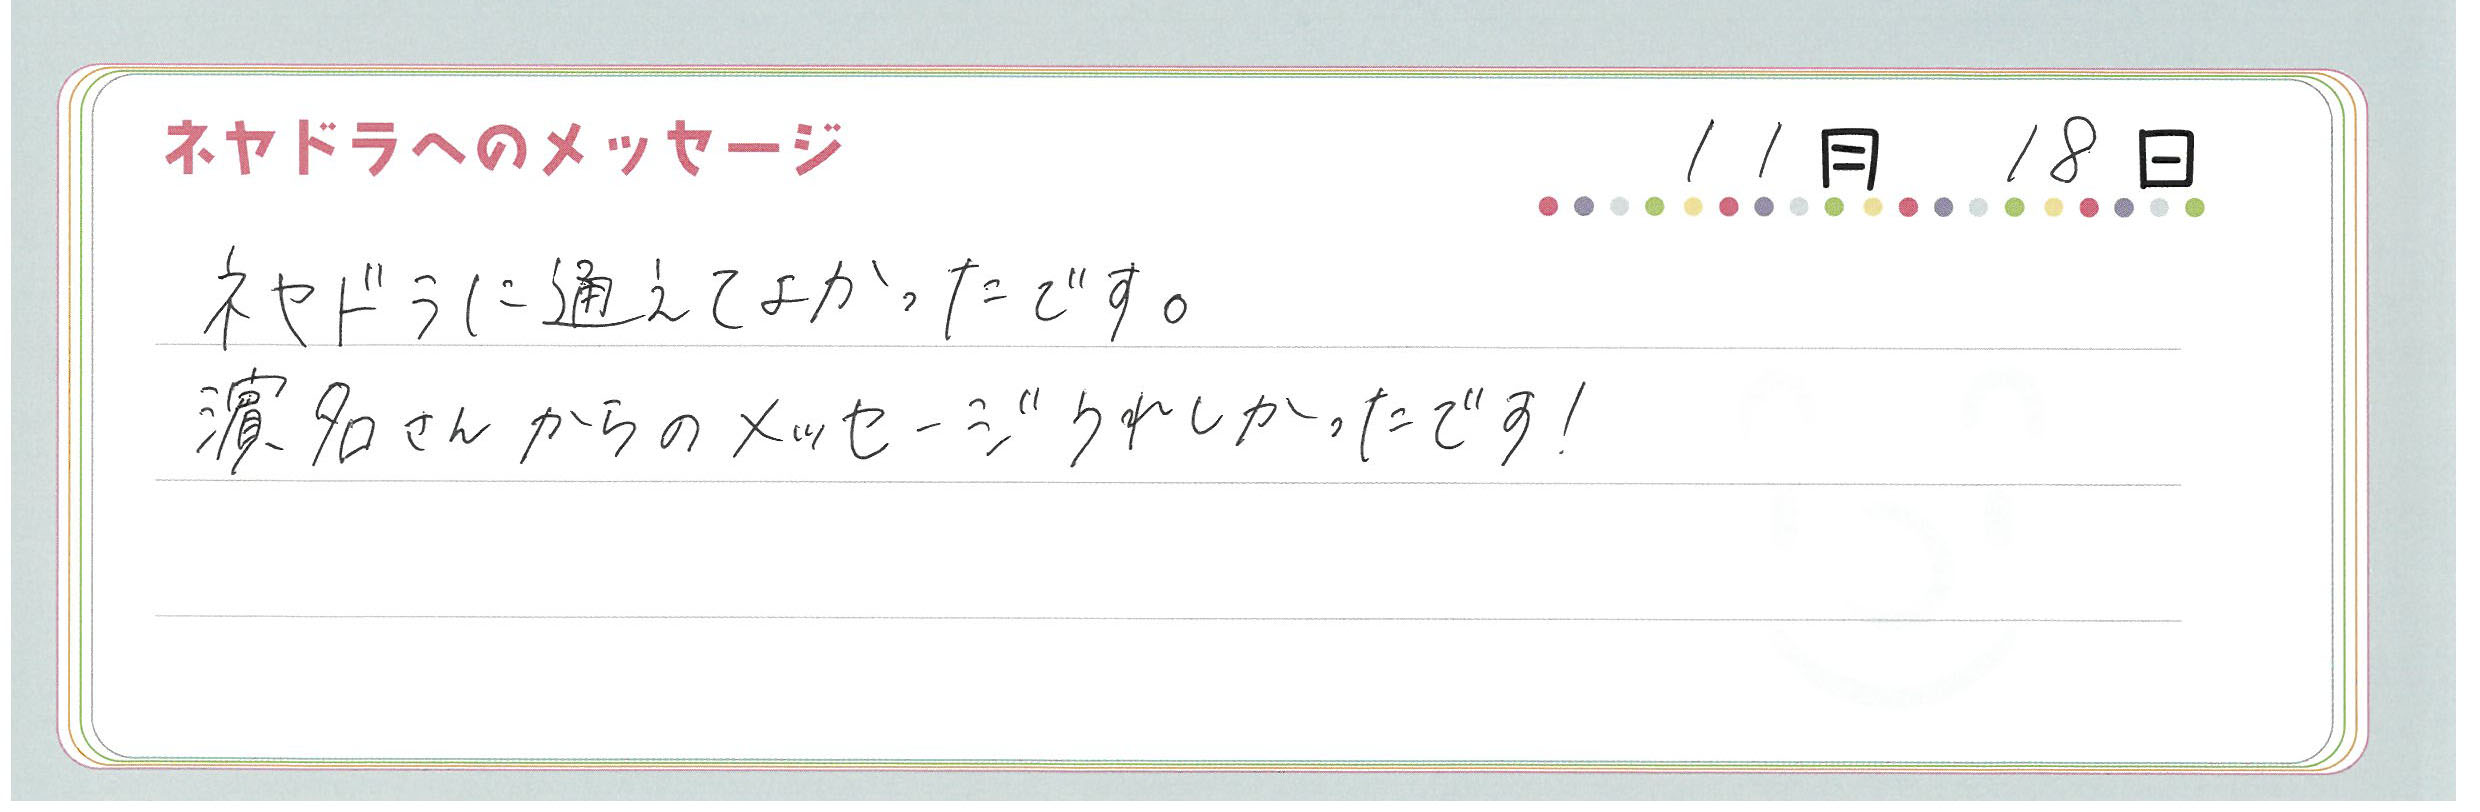 ネヤドラへのメッセージ 11月 18日
ネヤドラに通えてよかったです。
濱名さんからのメッセージうれしかったです!